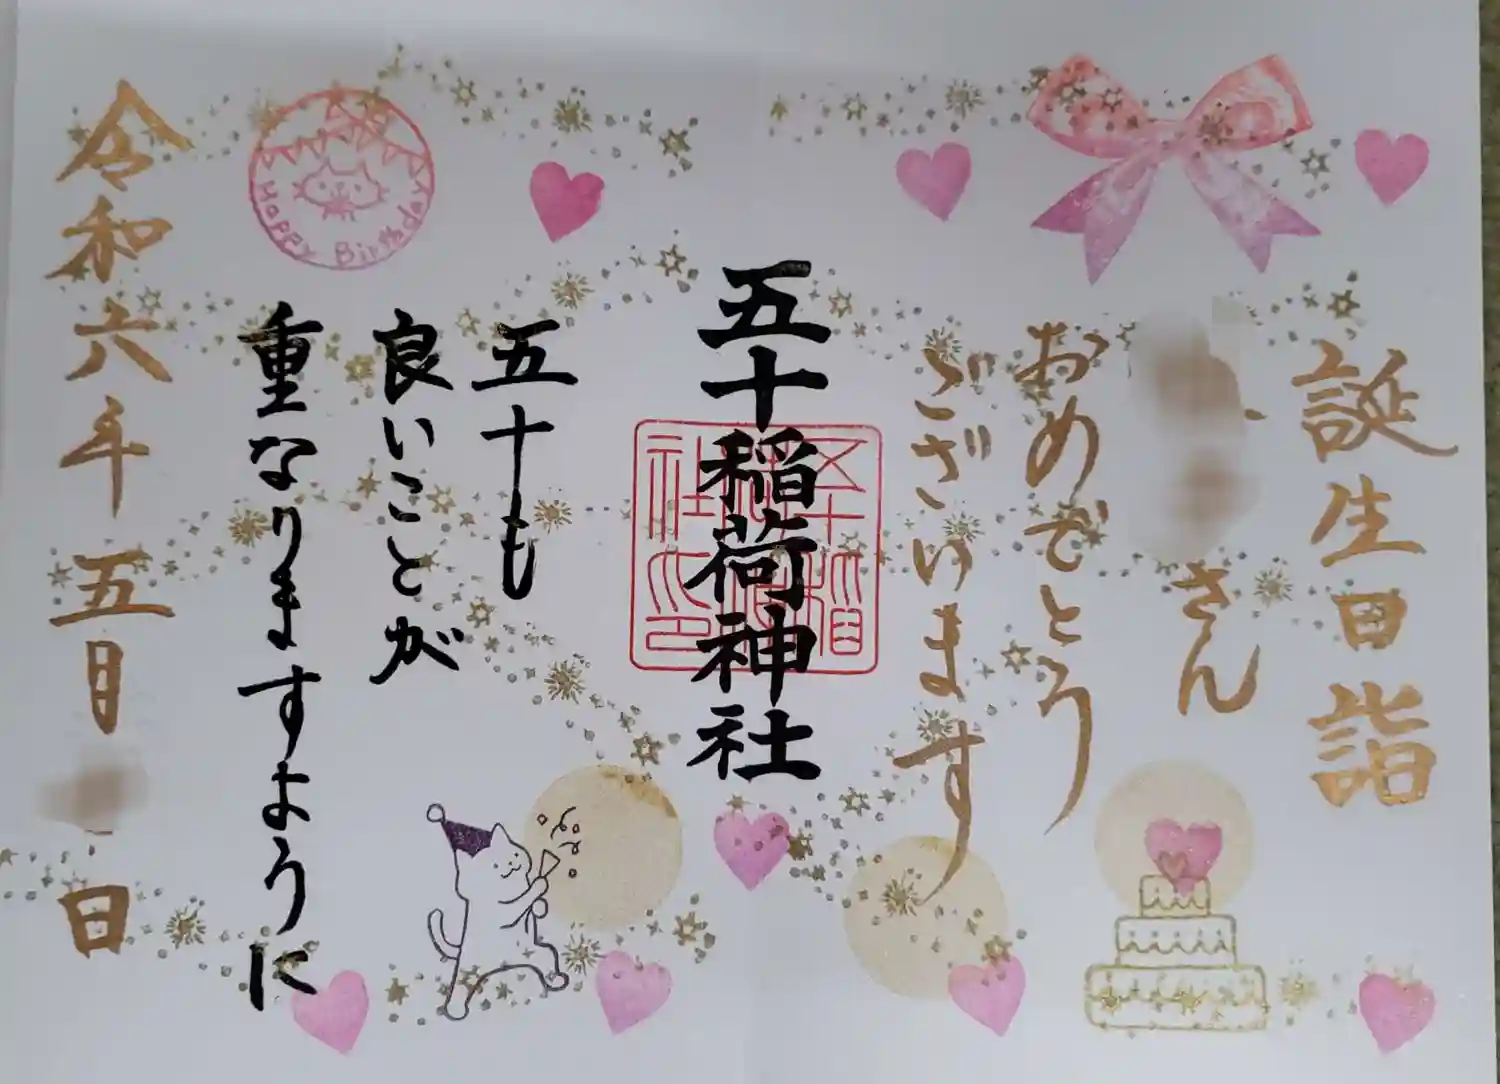 誕生日詣
さん
おめでとう
ございます
五十稲荷神社
五十稲荷神社之印
五十も
良いことが
重なりますように
Happy Birthday
令和六年五月
日